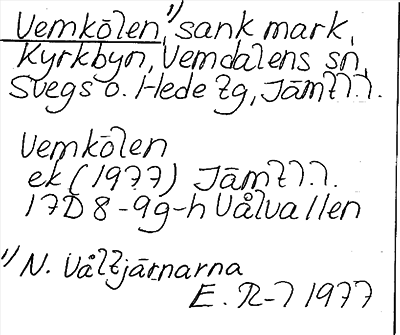 Vemkölen,¹⁾ sank mark,
Kyrkbyn, Vemdalens sn,
Svegs o. Hede tg, Jämtl.l.
Vemkölen
ek (1977) Jämtl.l.
17D 8-9g-h Vålvallen
¹⁾ N. Våltjärnarna
E. R-l 1977